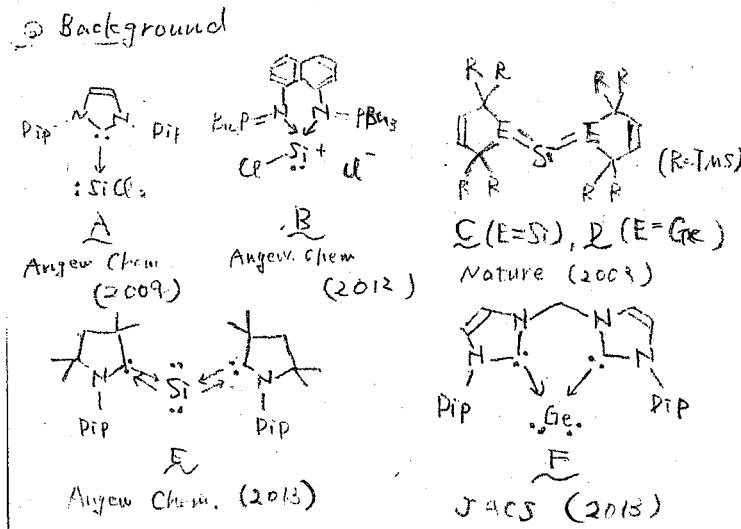 Background
N N
Dip Dip
:SiCl₂
A
Angew Chem
(2009)
N N
Bu₃P PBu₃
Cl Si⁺ Cl⁻
B
Angew. Chem
(2012)
R R R R
E Si E
R R R R
(R=TMS)
C (E=Si), D (E=Ge)
Nature (2003)
N Si N
Dip Dip
E
Angew Chem. (2013)
N N
N N
Dip Dip
Ge
F
JACS (2013)